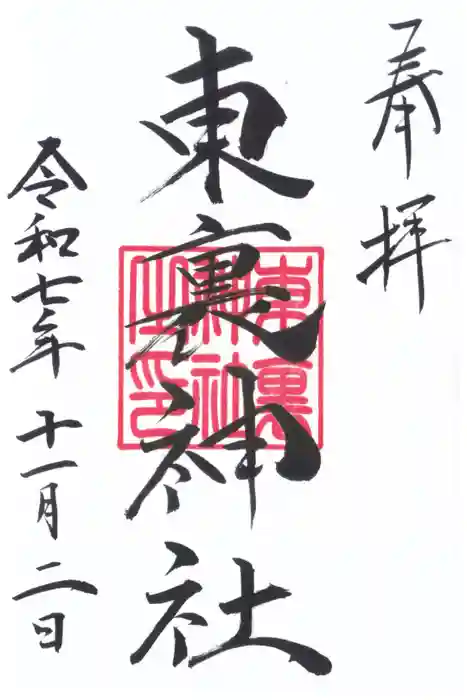 奉拝
東裏神社
東裏
神社
之印
令和七年十一月二日